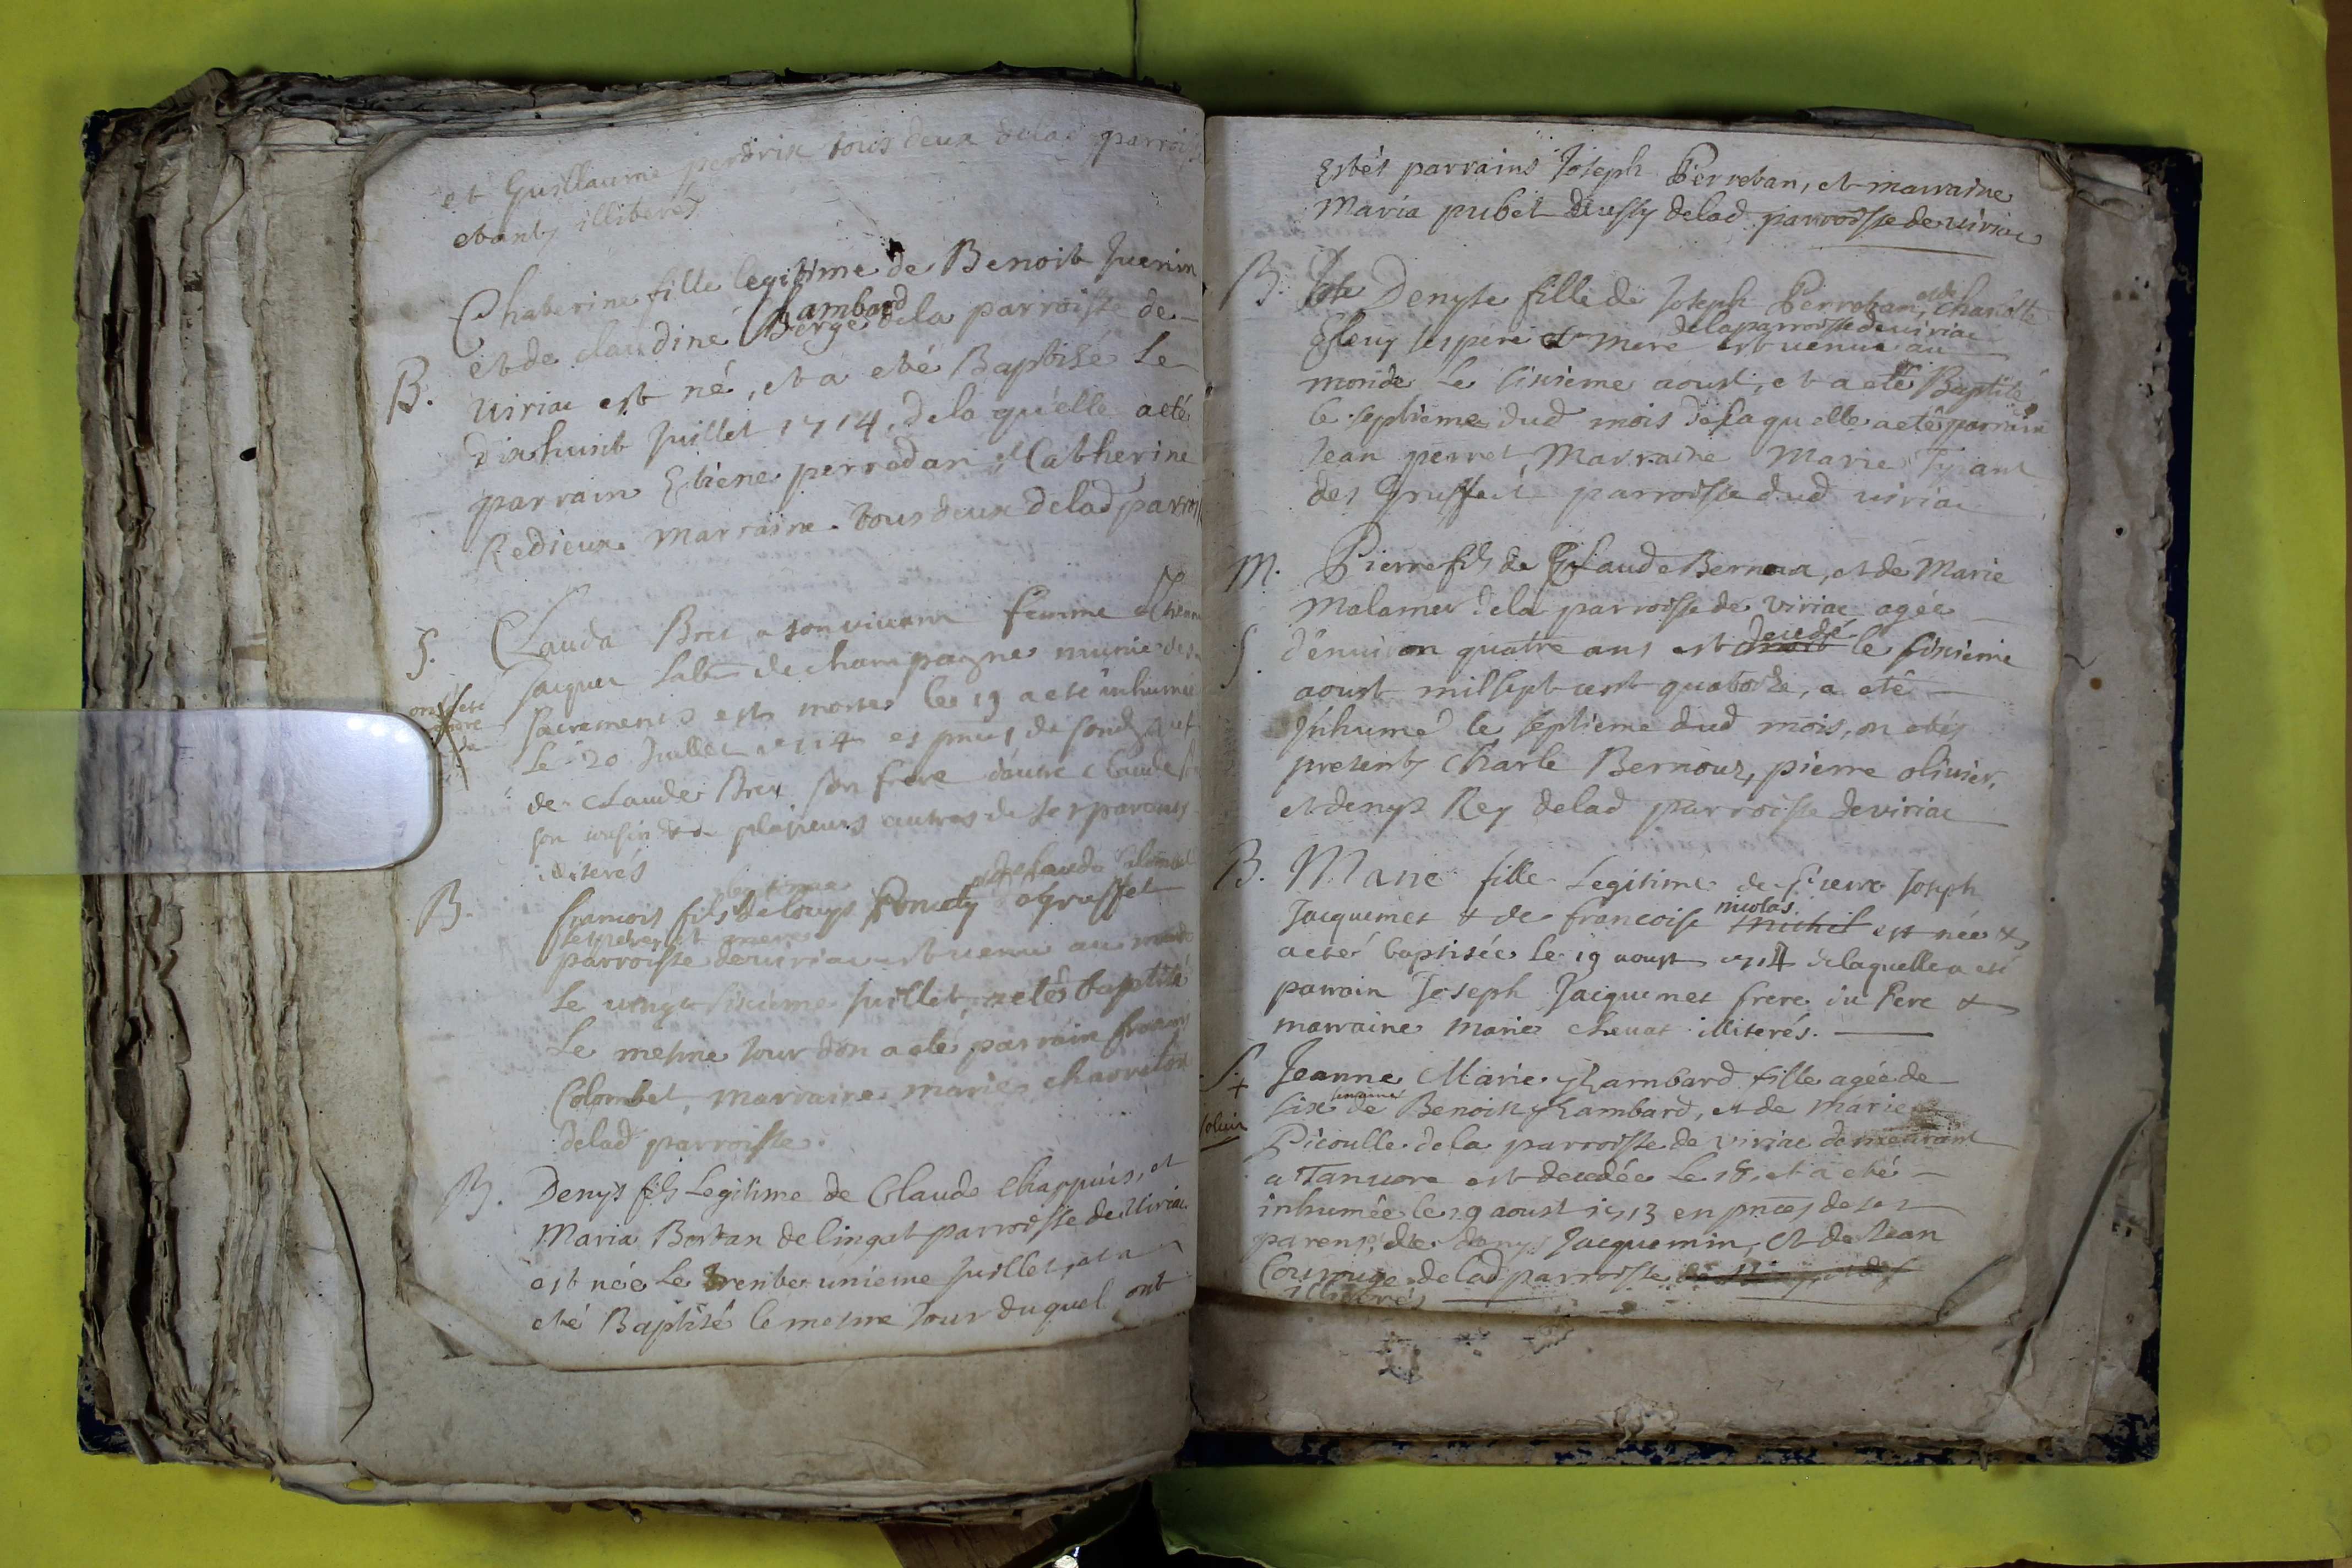 et Guillaume perdrix tous deux delad parroisse
etants illiterés
Chaterine fille legitime de Benoit Juenin
Chambard
et de claudine Berge dela parroisse de
B. viriac est né, et a eté Baptisé le
dixhuict Juillet 1714, dela quélle aeté
parrain Etiène perrodan, et Catherine
Redieux marraine. tous deux delad parroi
S. Clauda Brex a son vivant femme
Jacques Labe de champagne munie des
sacrements est morte le 19 a esté inhumée
Le 20 Juillet 1714 es pnces de
de claude Brex son frere dautre claude
son cousin & de plusieurs autres de ses parents
illiterés
legitime et de clauda Colombet
B. francois fils de Louys a gruffet
ses pere et mere
parroisse de viriac est venu au monde
le vingt sixieme Juillet, aeté baptisé
le mesme Jour don a eté parrain francoys
Colombet, marraine marie charreton
delad parroisse.
B. Denys fils Legitime de Claude Chappuis, et
Maria Bortan de lingat parroisse de Viriac
est née Le trente unieme Juillet, et a
eté Baptisé le mesme Jour duquel ont
Estés parrains Joseph Perretan, et marraine
Maria pubet delad parroisse de viriac
et de
B. Denyse fille de Joseph Perretan, charlotte
de la parroisse de viriac
ses pere et mere est venue au
monde le sixieme aoust, et a eté Baptisé
le septieme dud mois de laquelle a eté parrain
Jean perret, Marraine Marie
des Gruffet parroisse dud viriac
M. Pierre fils de Claude Bernoux, et de Marie
Malamer dela parroisse de viriac agée
decedé
S. d'environ quatre ans est mort le sixieme
aoust mil sept cent quatorze, a eté
Jnhumé le septieme dud mois, on etés
presents Charle Bernoux, pierre olivier,
et denys Rey delad parroisse de viriac
B. Marie fille Legitime de Pierre Joseph
nicolas
Jacquemet & de francoise michel est née &
aeté baptisée le 19 aoust 1714 delaquelle a eté
parrain Joseph Jacquemet frere du Pere &
marraine Marie chevat illiterés.
S. Jeanne Marie Chambard fille agée de
semaines
six de Benoist Chambard, et de marie
Picoulle dela parroisse de viriac demeurant
a Tanvore est decedée Le 18, et a eté
inhumée le 19 aoust 1713 en pnces de ses
parens, de denys Jacquemin, et de Jean
delad parroisse
illiterés